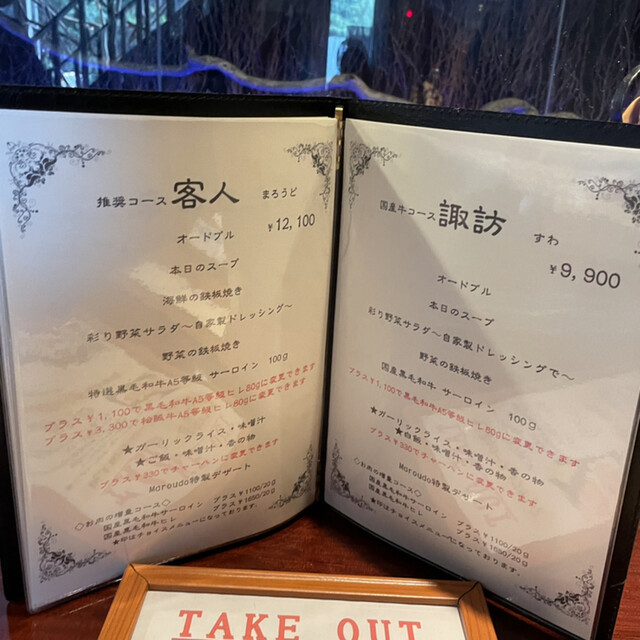 推奨コース 客人 まろうど
¥12,100
オードブル
本日のスープ
海鮮の鉄板焼き
彩り野菜サラダ〜自家製ドレッシング〜
野菜の鉄板焼き
特選黒毛和牛A5等級 サーロイン 100g
プラス¥1,100で黒毛和牛A5等級ヒレ80gに変更できます
プラス¥3,300で松阪牛A5等級ヒレ80gに変更できます
★ガーリックライス・味噌汁
★ご飯・味噌汁・香の物
プラス¥330でチャーハンに変更できます
Maroudo特製デザート
◇お肉の増量コース◇
国産黒毛和牛サーロイン プラス¥1100/20g
国産黒毛和牛ヒレ プラス¥1650/20g
★印はチョイスメニューになっております。
国産牛コース 諏訪 すわ
¥9,900
オードブル
本日のスープ
彩り野菜サラダ〜自家製ドレッシングで〜
野菜の鉄板焼き
国産黒毛和牛 サーロイン 100g
プラス¥1,100で黒毛和牛A5等級ヒレ80gに変更できます
★ガーリックライス・味噌汁・香の物
★白飯・味噌汁・香の物
プラス¥330でチャーハンに変更できます
Maroudo特製デザート
◇お肉の増量コース◇
国産黒毛和牛サーロイン プラス¥1100/20g
国産黒毛和牛ヒレ プラス¥1650/20g
★印はチョイスメニューになっております。
TAKE OUT